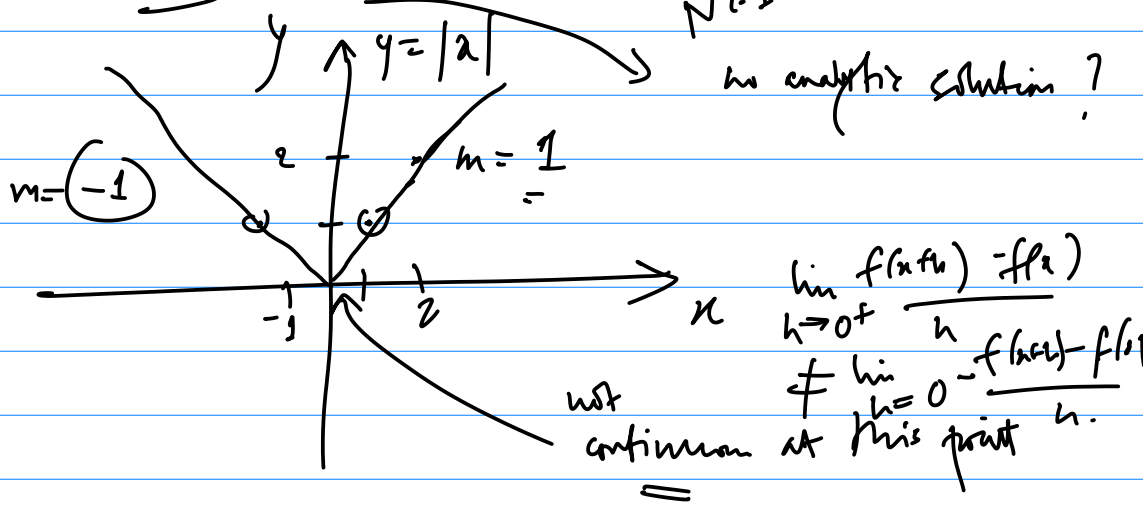 y
y = |x|
no analytic solution ?
2
m = 1
m= -1
-1
2
x
lim h→0⁺ f(x+h) - f(x) / h
≠ lim h=0⁻ f(x+h) - f( / h.
not
continuous at this point